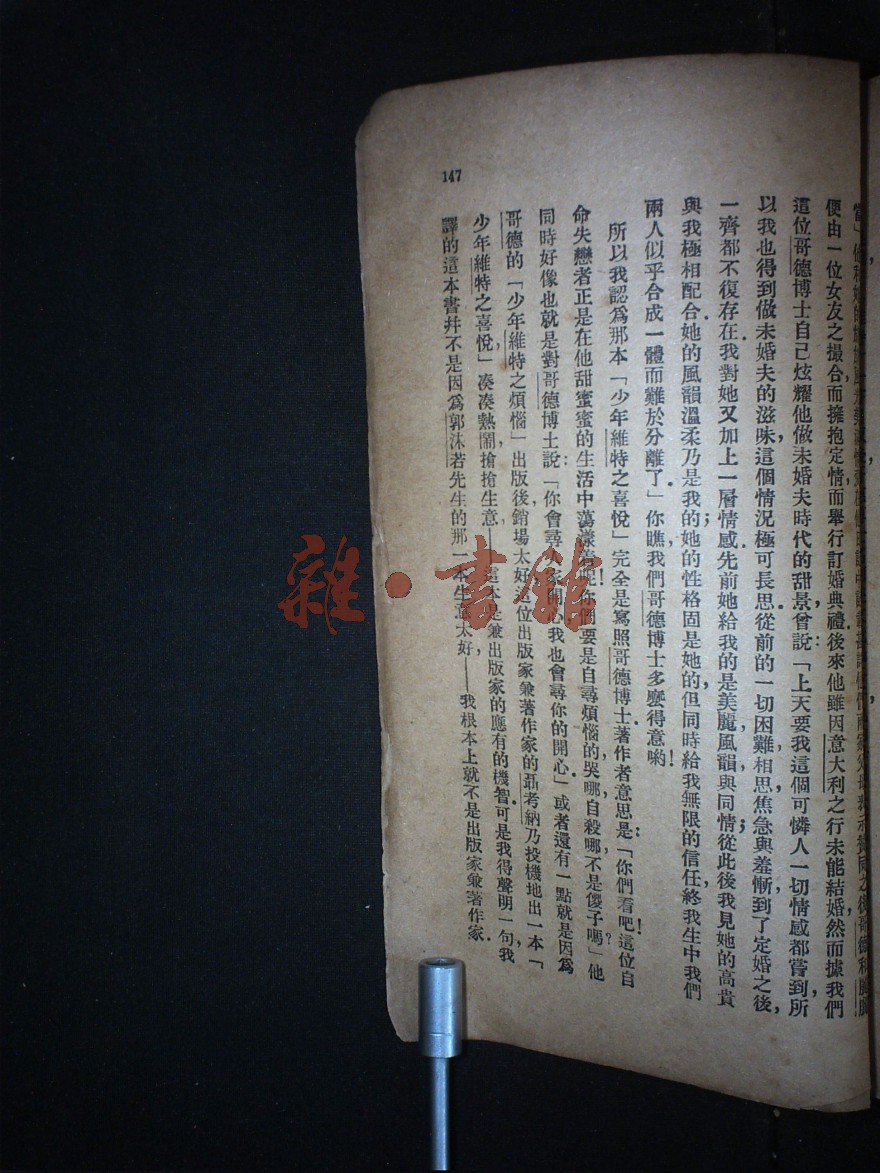 便由一位女友之撮合，而擁抱定情，而舉行訂婚典禮。後來他雖因意大利之行，未能結婚，然而據我們
這位哥德博士自己炫耀他做未婚夫時代的甜景，曾說：「上天要我這個可憐人一切情感都嘗到，所
以我也得到做未婚夫的滋味，這個情況極可長思。從前的一切困難相思焦急與羞慚，到了定婚之後，
一齊都不復存在。我對她又加上一層情感，先前她給我的是美麗風韻與同情；從此後我見她的高貴
與我極相配合。她的風韻溫柔乃是我的；她的性格固是她的，但同時給我無限的信任，終我生中，我們
兩人似乎合成一體而難於分離了。」你瞧，我們哥德博士多麼得意喲！
所以我認爲那本「少年維特之喜悅」完全是寫照哥德博士。著作者意思是：「你們看吧！這位自
命失戀者正是在他甜蜜蜜的生活中蕩漾着呢！你們要是自尋煩惱的哭哪，自殺哪，不是傻子嗎？」他
同時好像也就是對哥德博士說：「你會尋人家開心，我也會尋你的開心。」或者還有一點，就是因爲
哥德的「少年維特之煩惱」出版後，銷場太好，這位出版家兼著作家的聶考納乃投機地出一本「
少年維特之喜悅」，凑凑熱鬧，搶搶生意——這本是兼出版家的應有的機智。可是我得聲明一句，我
譯的這本書，幷不是因爲郭沫若先生的那一本生意太好，——我根本上就不是出版家兼著作家。
147
雜·書館